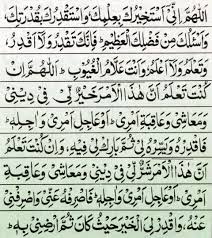 اَللّٰهُمَّ اِنِّیْۤ اَسْتَخِیْرُكَ بِعِلْمِكَ وَاَسْتَقْدِرُكَ بِقُدْرَتِكَ
وَاَسْئَلُكَ مِنْ فَضْلِكَ الْعَظِیْمِ ؕ فَاِنَّكَ تَقْدِرُ وَلَاۤ اَقْدِرُ
وَتَعْلَمُ وَلَاۤ اَعْلَمُ وَاَنْتَ عَلَّامُ الْغُیُوْبِ ؕ اَللّٰهُمَّ اِنْ
كُنْتَ تَعْلَمُ اَنَّ هٰذَا الْاَمْرَ خَیْرٌ لِّیْ فِیْ دِیْنِیْ
وَمَعَاشِیْ وَعَاقِبَةِ اَمْرِیْ ؕ اَوْ عَاجِلِ اَمْرِیْ وَاٰجِلِهٖ ؕ
فَاقْدِرْهُ وَیَسِّرْهُ لِیْ ثُمَّ بَارِكْ لِیْ فِیْهِ ؕ وَاِنْ كُنْتَ تَعْلَمُ
اَنَّ هٰذَا الْاَمْرَ شَرٌّ لِّیْ فِیْ دِیْنِیْ وَمَعَاشِیْ وَعَاقِبَةِ
اَمْرِیْ ؕ اَوْ عَاجِلِ اَمْرِیْ وَاٰجِلِهٖ ؕ فَاصْرِفْهُ عَنِّیْ وَاصْرِفْنِیْ
عَنْهُ ؕ وَاقْدِرْ لِیَ الْخَیْرَ حَیْثُ كَانَ ثُمَّ اَرْضِنِیْ بِهٖ ؕ